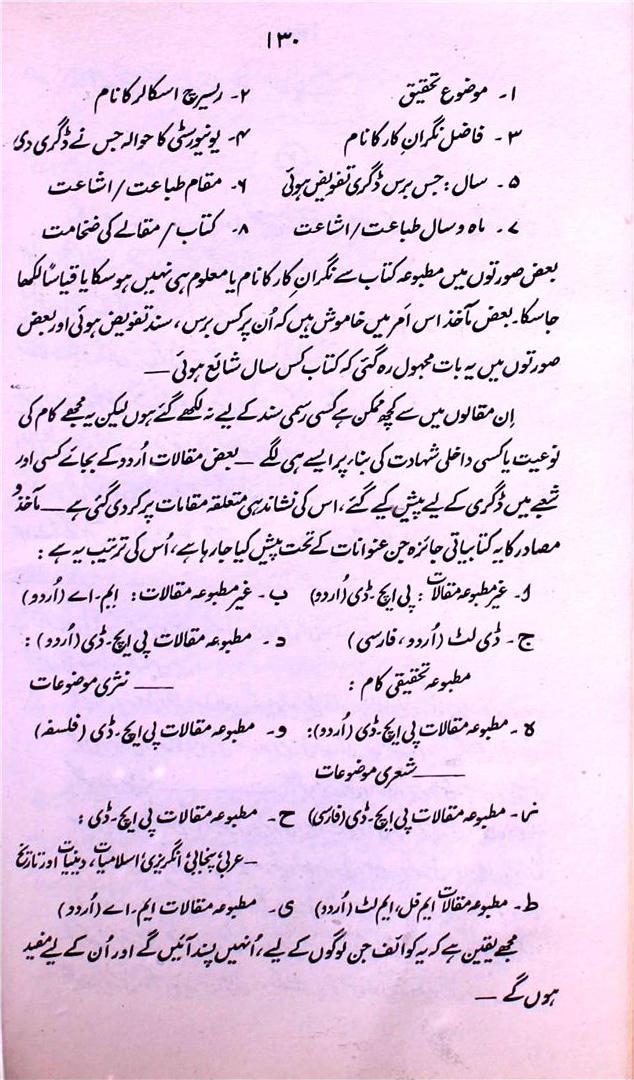 ۱۳۰
۱۔ موضوع تحقیق ۲۔ ریسرچ اسکالر کا نام
۳۔ فاضل نگرانِ کار کا نام ۴۔ یونیورسٹی کا حوالہ جس نے ڈگری دی
۵۔ سال: جس برس ڈگری تفویض ہوئی ۶۔ مقام طباعت/اشاعت
۷۔ ماہ و سال طباعت/اشاعت ۸۔ کتاب/مقالے کی ضخامت
بعض صورتوں میں مطبوعہ کتاب سے نگرانِ کار کا نام یا معلوم ہی نہیں ہو سکا یا قیاساً لکھا
جا سکا۔ بعض مآخذ اس اَمر میں خاموش ہیں کہ اُن پر کس برس، سند تفویض ہوئی اور بعض
صورتوں میں یہ بات مجہول رہ گئی کہ کتاب کس سال شائع ہوئی —
اِن مقالوں میں سے کچھ ممکن ہے کسی رسمی سند کے لیے نہ لکھے گئے ہوں لیکن یہ مجھے کام کی
نوعیت یا کسی داخلی شہادت کی بناء پر ایسے ہی لگے — بعض مقالات اُردو کے بجائے کسی اور
شعبے میں ڈگری کے لیے پیش کیے گئے، اس کی نشاندہی متعلقہ مقامات پر کر دی گئی ہے — مآخذ و
مصادر کا یہ کتابیاتی جائزہ جن عنوانات کے تحت پیش کیا جا رہا ہے، اُس کی ترتیب یہ ہے:
ا۔ غیر مطبوعہ مقالات: پی ایچ۔ڈی (اُردو) ب۔ غیر مطبوعہ مقالات: ایم۔اے (اُردو)
ج۔ ڈی لٹ (اُردو، فارسی) د۔ مطبوعہ مقالات پی ایچ۔ڈی (اُردو):
مطبوعہ تحقیقی کام: —— نثری موضوعات
ہ۔ مطبوعہ مقالات پی ایچ۔ڈی (اُردو): و۔ مطبوعہ مقالات پی ایچ۔ڈی (فلسفہ)
—— شعری موضوعات
ز۔ مطبوعہ مقالات پی ایچ۔ڈی (فارسی) ح۔ مطبوعہ مقالات پی ایچ۔ڈی:
— عربی، پنجابی، انگریزی، اسلامیات، دینیات اور تاریخ
ط۔ مطبوعہ مقالات ایم فل، ایم لٹ (اُردو) ی۔ مطبوعہ مقالات ایم۔اے (اُردو)
مجھے یقین ہے کہ یہ کوائف جن لوگوں کے لیے، اُنہیں پسند آئیں گے اور اُن کے لیے مفید
ہوں گے —